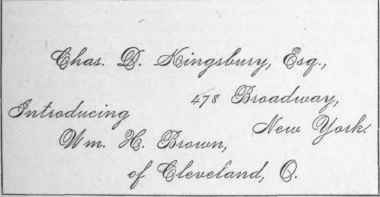 Chas. D. Kingsbury, Esq.,
478 Broadway,
New York.
Introducing
Wm. H. Brown,
of Cleveland, O.